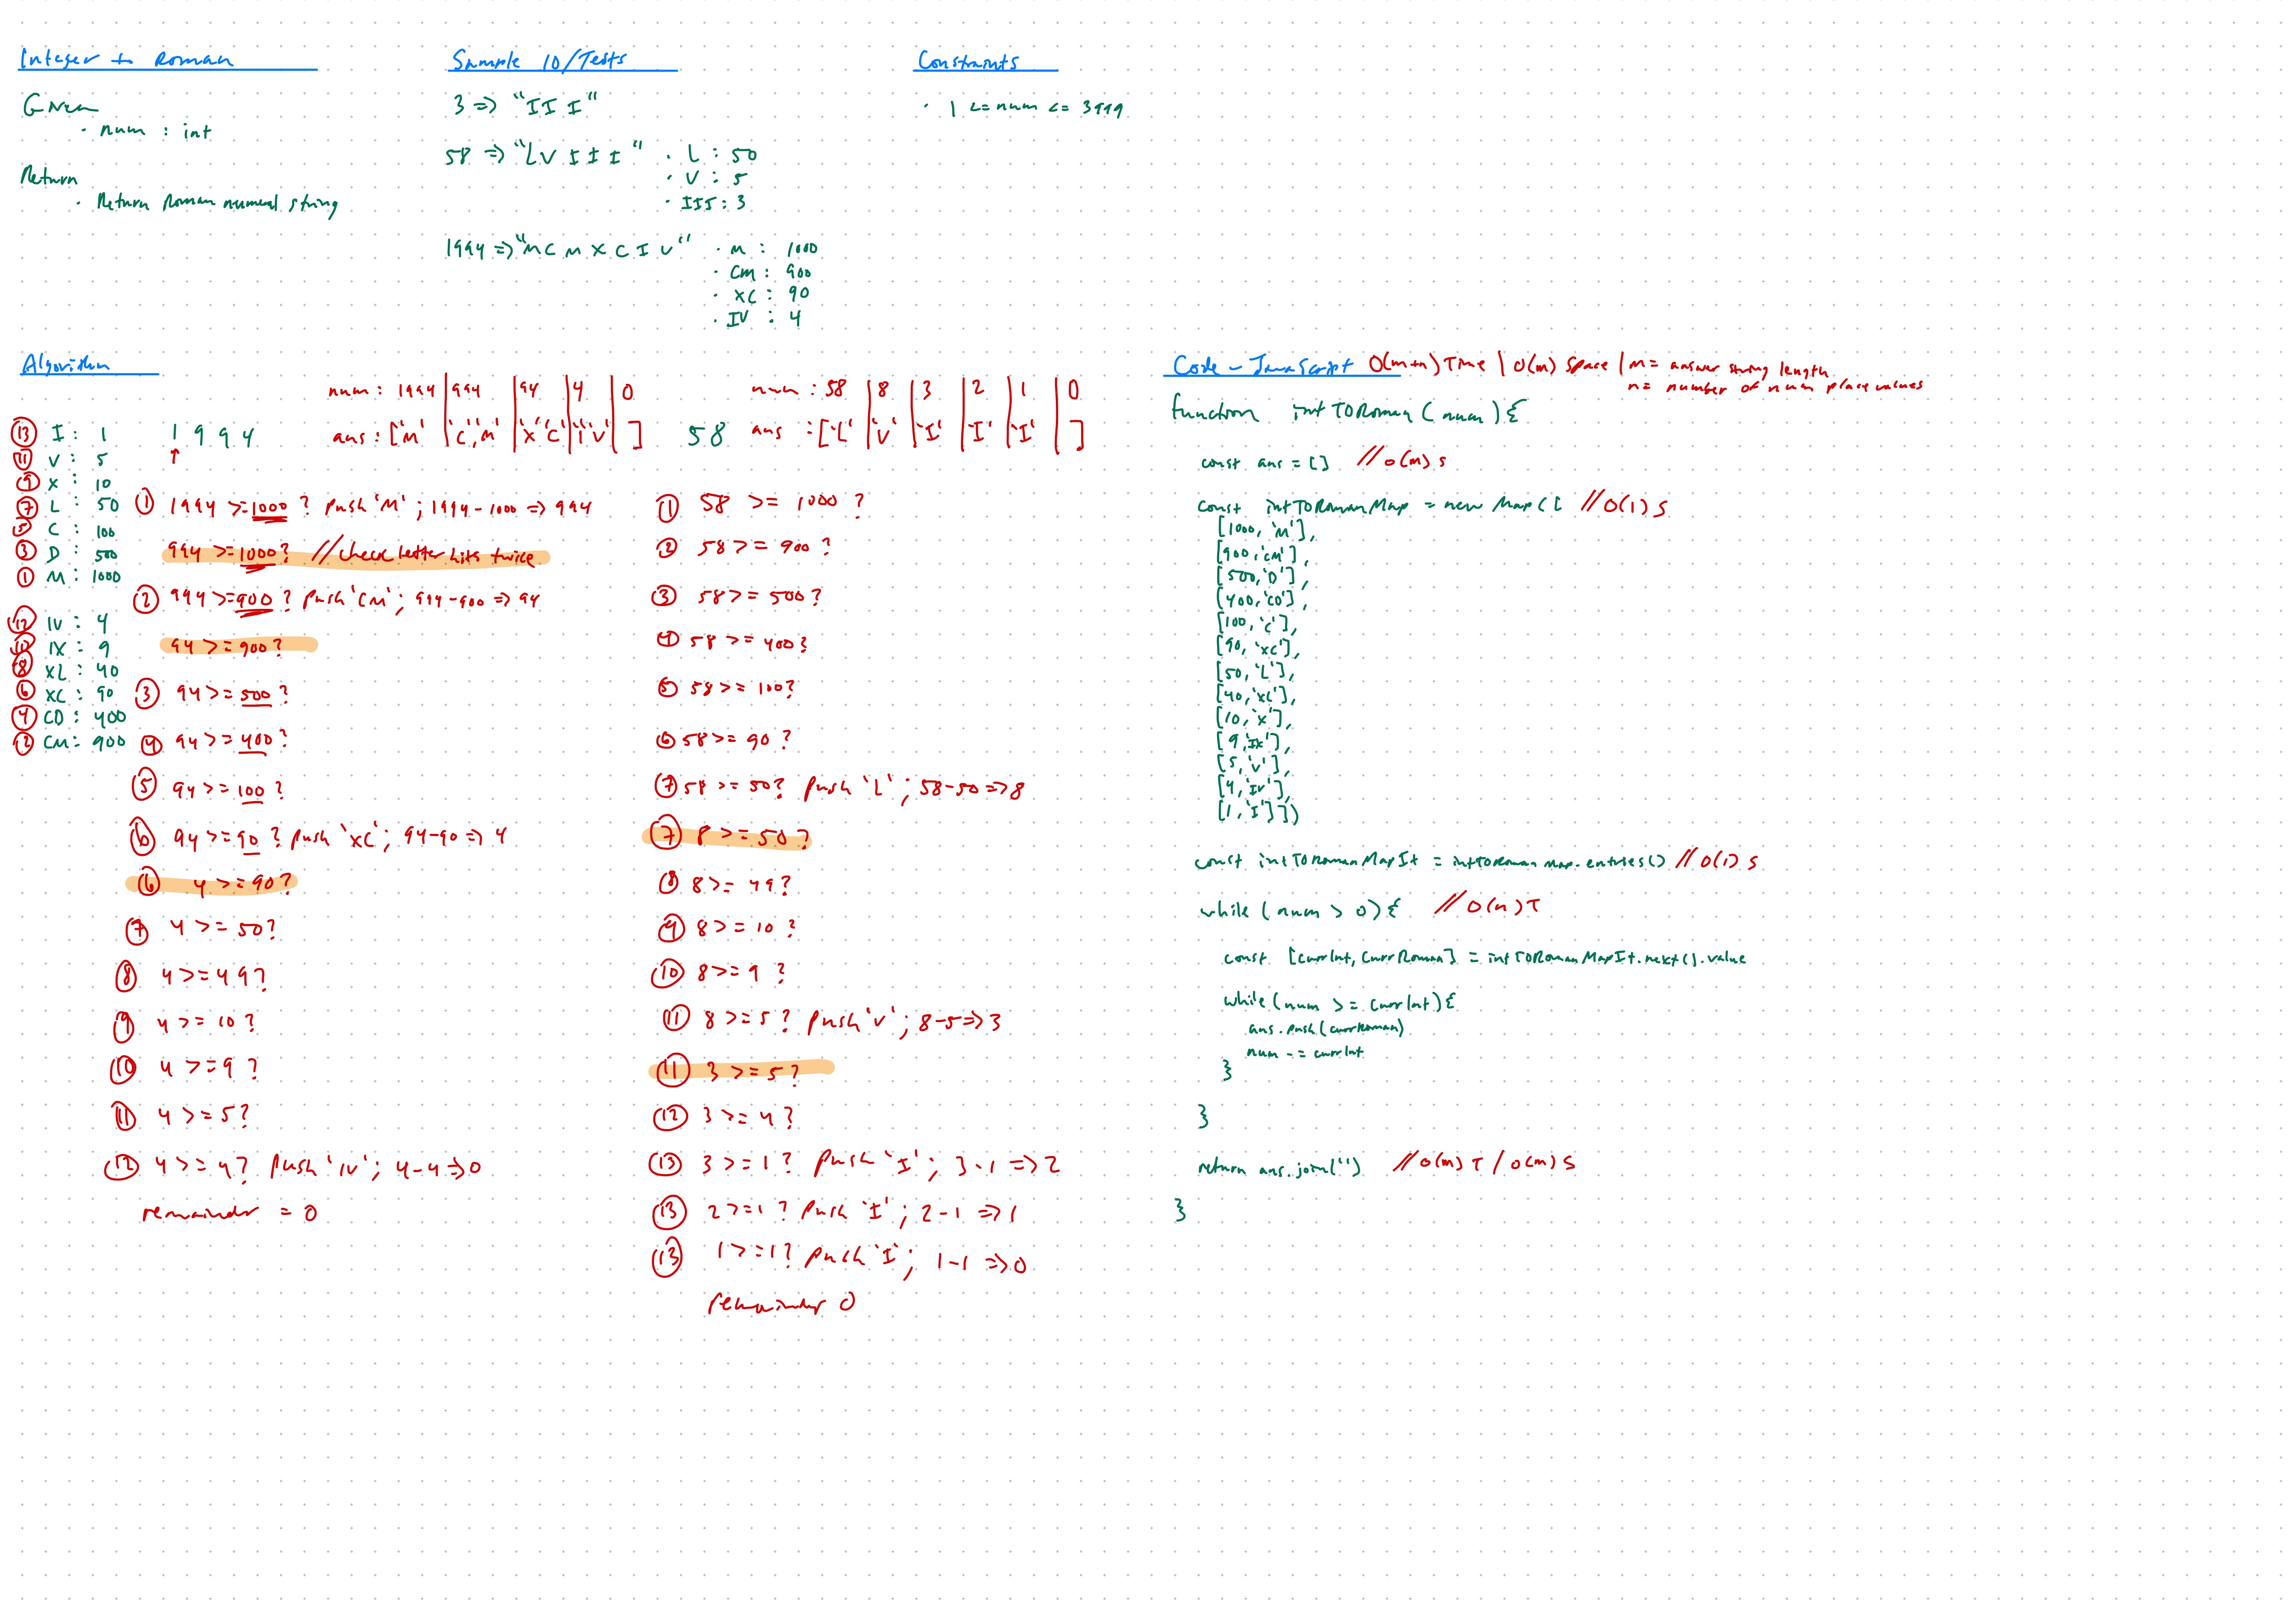 Integer to Roman
Given
· num : int
Return
· Return Roman numeral string
Sample IO/Tests
3 => "III"
58 => "LVIII"
· L : 50
· V : 5
· III : 3
1994 => "MCMXCIV"
· M : 1000
· CM : 900
· XC : 90
· IV : 4
Constraints
· 1 <= num <= 3999
Algorithm
13 I : 1
11 V : 5
9 X : 10
7 L : 50
5 C : 100
3 D : 500
1 M : 1000
12 IV : 4
10 IX : 9
8 XL : 40
6 XC : 90
4 CD : 400
2 CM : 900
1994
↑
num : 1994 | 994 | 94 | 4 | 0
ans : ['M' | 'C,M' | 'X'C' | 'I'V' | ]
1 1994 >= 1000 ? push 'M' ; 1994 - 1000 => 994
994 >= 1000? // check letter hits twice
2 994 >= 900 ? push 'CM' ; 994 - 900 => 94
94 >= 900?
3 94 >= 500 ?
4 94 >= 400?
5 94 >= 100 ?
6 94 >= 90 ? push 'XC' ; 94-90 => 4
6 4 >= 90?
7 4 >= 50?
8 4 >= 49?
9 4 >= 10?
10 4 >= 9 ?
11 4 >= 5?
12 4 >= 4? push 'IV' ; 4-4 => 0
remainder = 0
58
num : 58 | 8 | 3 | 2 | 1 | 0
ans : ['L' | 'V' | 'I' | 'I' | 'I' | ]
1 58 >= 1000 ?
2 58 >= 900 ?
3 58 >= 500 ?
4 58 >= 400?
5 58 >= 100?
6 58 >= 90 ?
7 58 >= 50? push 'L' ; 58-50 => 8
7 8 >= 50 ?
8 8 >= 49?
9 8 >= 10 ?
10 8 >= 9 ?
11 8 >= 5 ? push 'V' ; 8-5 => 3
11 3 >= 5 ?
12 3 >= 4 ?
13 3 >= 1 ? push 'I' ; 3-1 => 2
13 2 >= 1 ? push 'I' ; 2-1 => 1
13 1 >= 1? push 'I' ; 1-1 => 0
remainder 0
Code - JavaScript O(m+n) Time | O(m) Space | m = answer string length
n = number of num place values
function intTORoman (num) {
const ans = [] // O(m) S
const intTORomanMap = new Map([ // O(1) S
[1000, 'M'],
[900, 'CM'],
[500, 'D'],
[400, 'CD'],
[100, 'C'],
[90, 'XC'],
[50, 'L'],
[40, 'XL'],
[10, 'X'],
[9, 'IX'],
[5, 'V'],
[4, 'IV'],
[1, 'I']])
const intTORomanMapIt = intTORomanMap.entries() // O(1) S
while (num > 0) { // O(n) T
const [currInt, currRoman] = intTORomanMapIt.next().value
while (num >= currInt) {
ans.push(currRoman)
num -= currInt
}
}
return ans.join('') // O(m) T / O(m) S
}